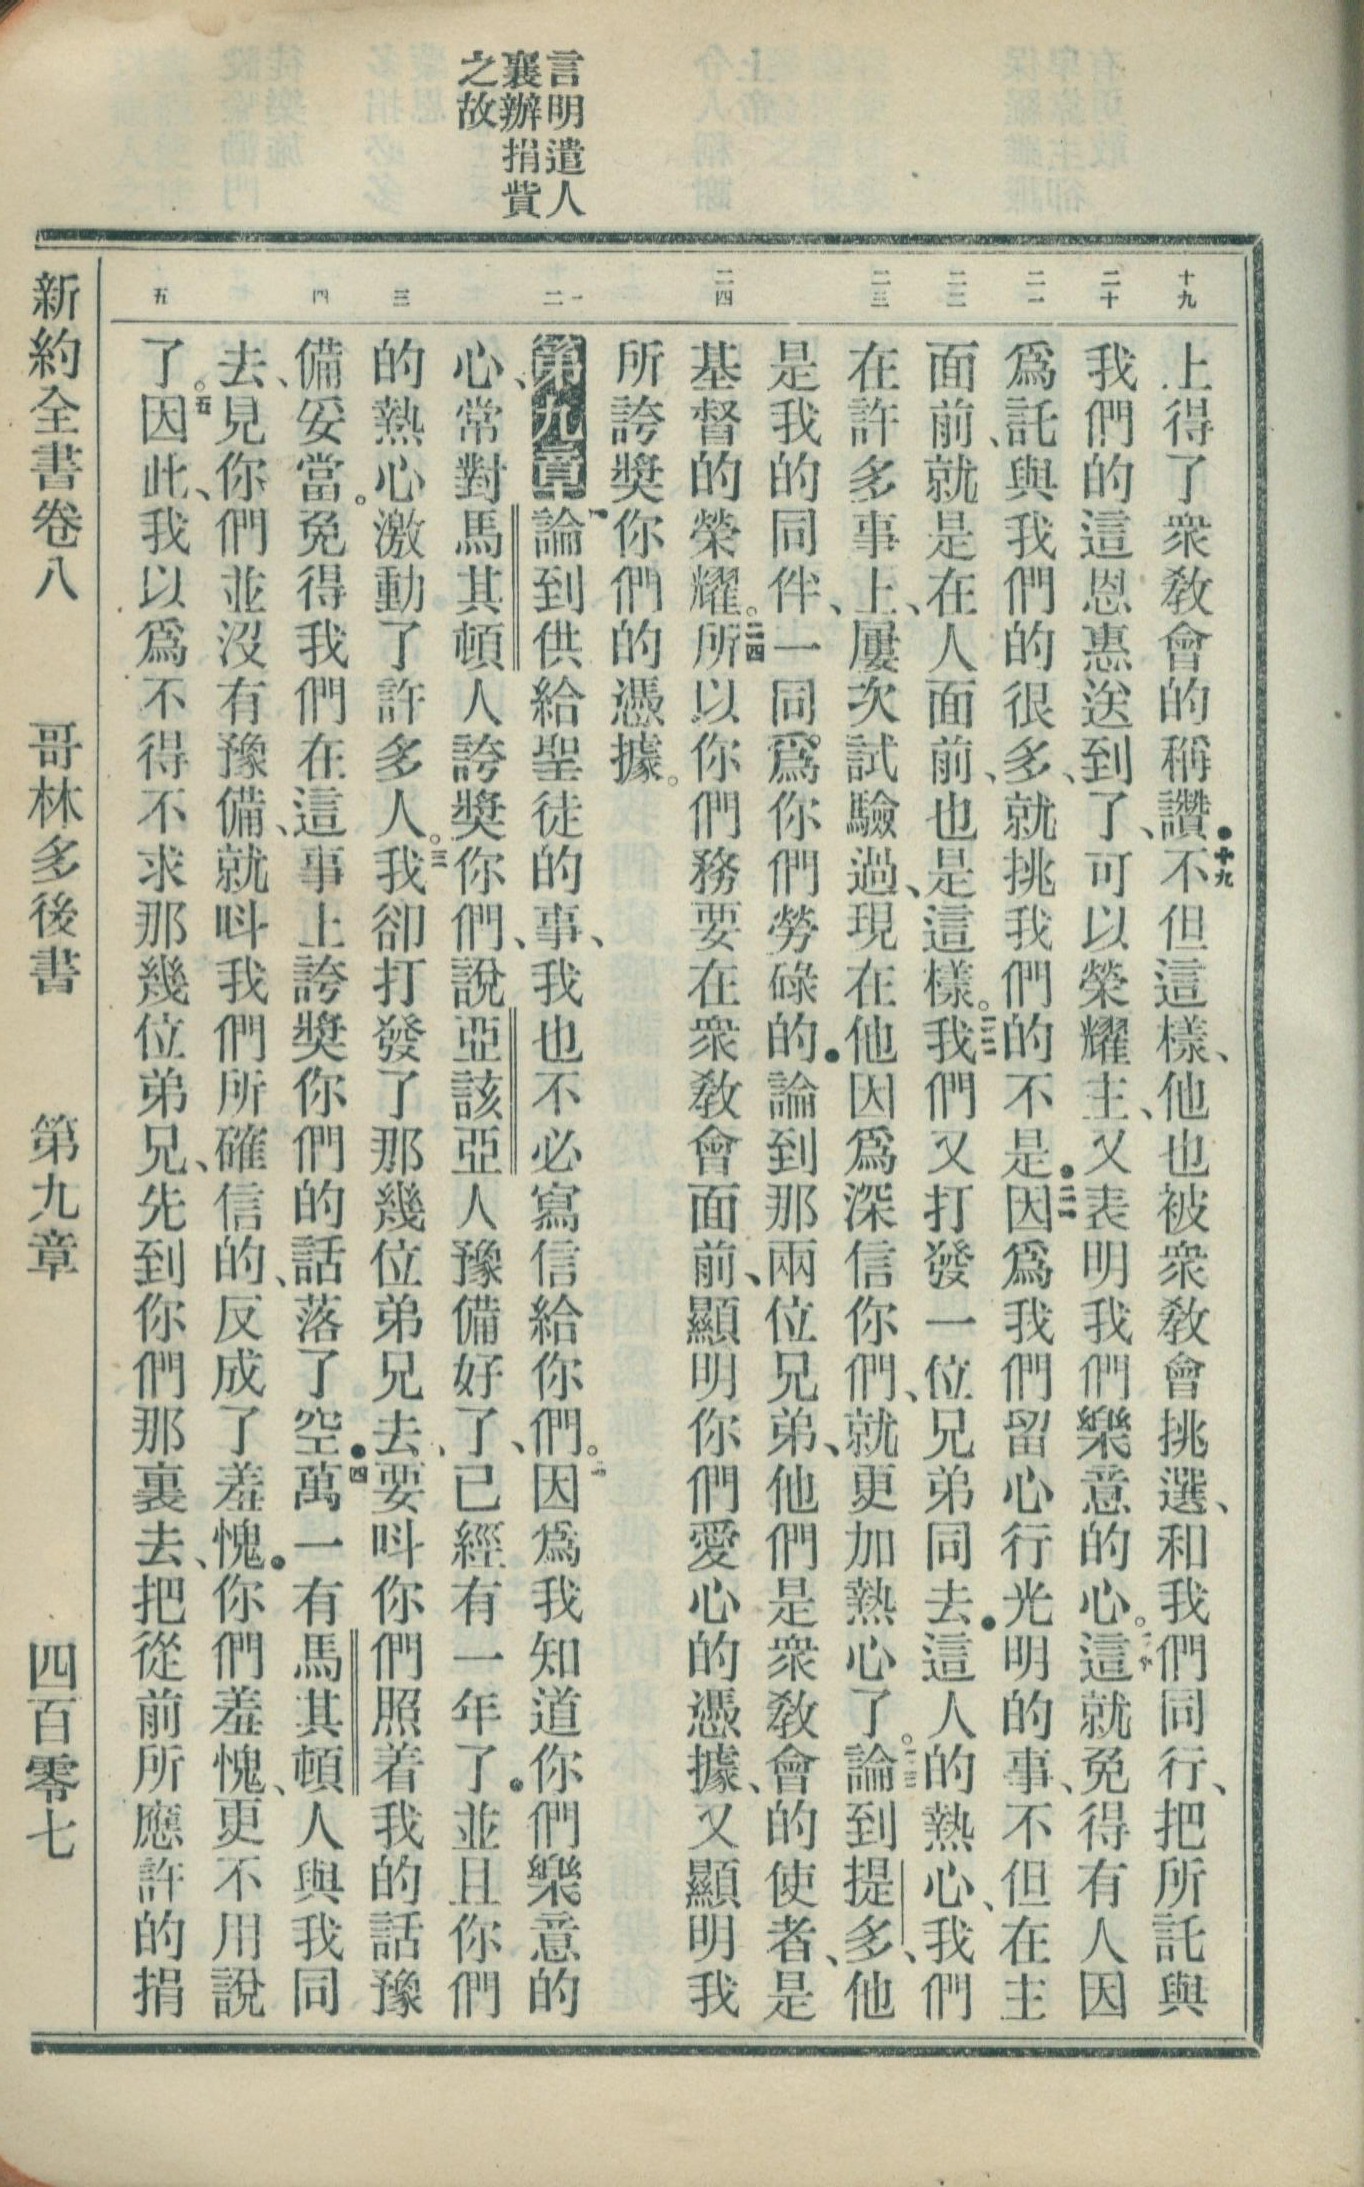 言明遣人
襄辦捐貲
之故
十九
二十
二一
二二
二三
二四
一
二
三
四
五
上得了衆教會的稱讚●十九不但這樣、他也被衆教會挑選、和我們同行、把所託與
我們的這恩惠送到了、可以榮耀主、又表明我們樂意的心。二十這就免得有人因
爲託與我們的很多、就挑我們的不是●二一因爲我們留心行光明的事、不但在主
面前、就是在人面前、也是這樣。二二我們又打發一位兄弟同去●這人的熱心、我們
在許多事上、屢次試驗過、現在他因爲深信你們、就更加熱心了。二三論到提多、他
是我的同伴、一同爲你們勞碌的●論到那兩位兄弟、他們是衆教會的使者、是
基督的榮耀。二四所以你們務要在衆教會面前、顯明你們愛心的憑據、又顯明我
所誇獎你們的憑據。
第九章 一論到供給聖徒的事、我也不必寫信給你們。二因爲我知道你們樂意的
心、常對馬其頓人誇獎你們、說亞該亞人豫備好了、已經有一年了●並且你們
的熱心激動了許多人。三我卻打發了那幾位弟兄去、要呌你們照着我的話豫
備妥當。免得我們在這事上誇獎你們的話落了空●四萬一有馬其頓人與我同
去、見你們並沒有豫備、就呌我們所確信的、反成了羞愧●你們羞愧、更不用說
了。五因此、我以爲不得不求那幾位弟兄、先到你們那裏去、把從前所應許的捐
新約全書卷八 哥林多後書 第九章 四百零七